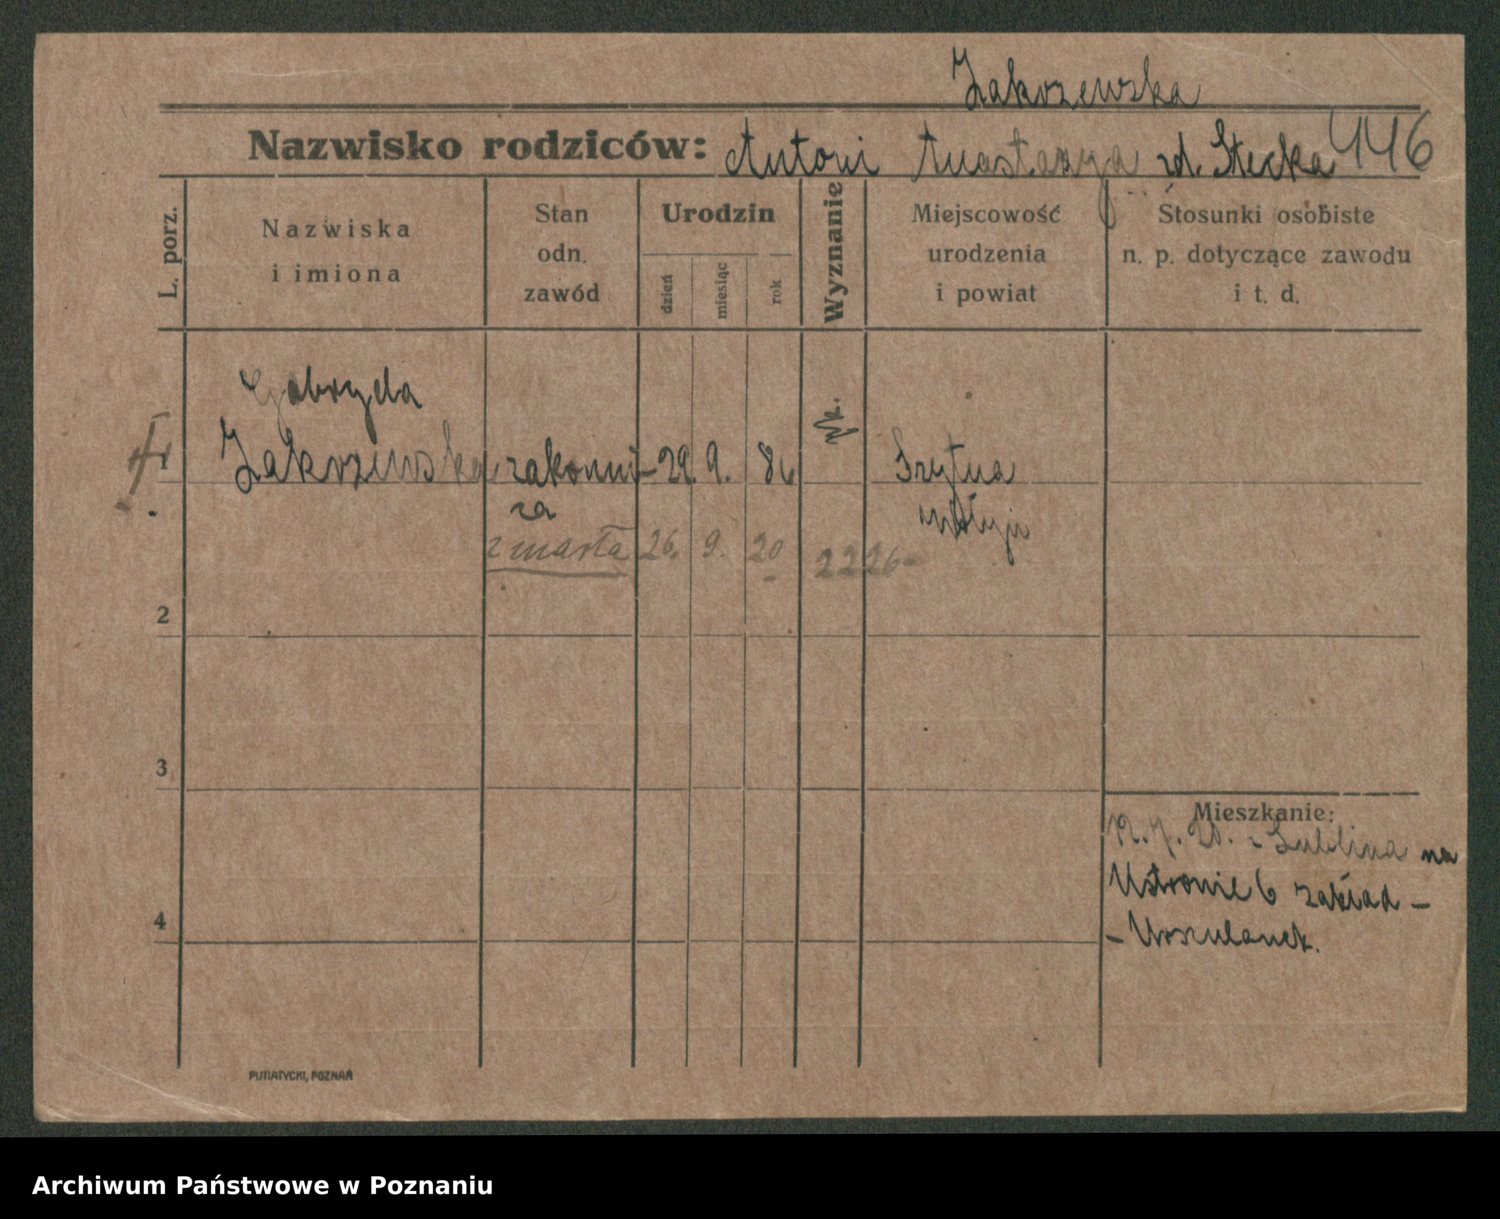 Zakrzewska
Nazwisko rodziców: Antoni Anastazya zd. Stecka 446
L. porz.
Nazwiska
i imiona
Stan
odn.
zawód
Urodzin
dzień
miesiąc
rok
Wyznanie
Miejscowość
urodzenia
i powiat
Stosunki osobiste
n. p. dotyczące zawodu
i t. d.
Gabryela
Zakrzewska zakonni- 29. 9. 86
ca
zmarła 26. 9. 20 2226
2
3
4
Mieszkanie:
Lublina na
Ustronie 6 zakład -
- Urszulanek.
PUTIATYCKI, POZNAŃ
Archiwum Państwowe w Poznaniu